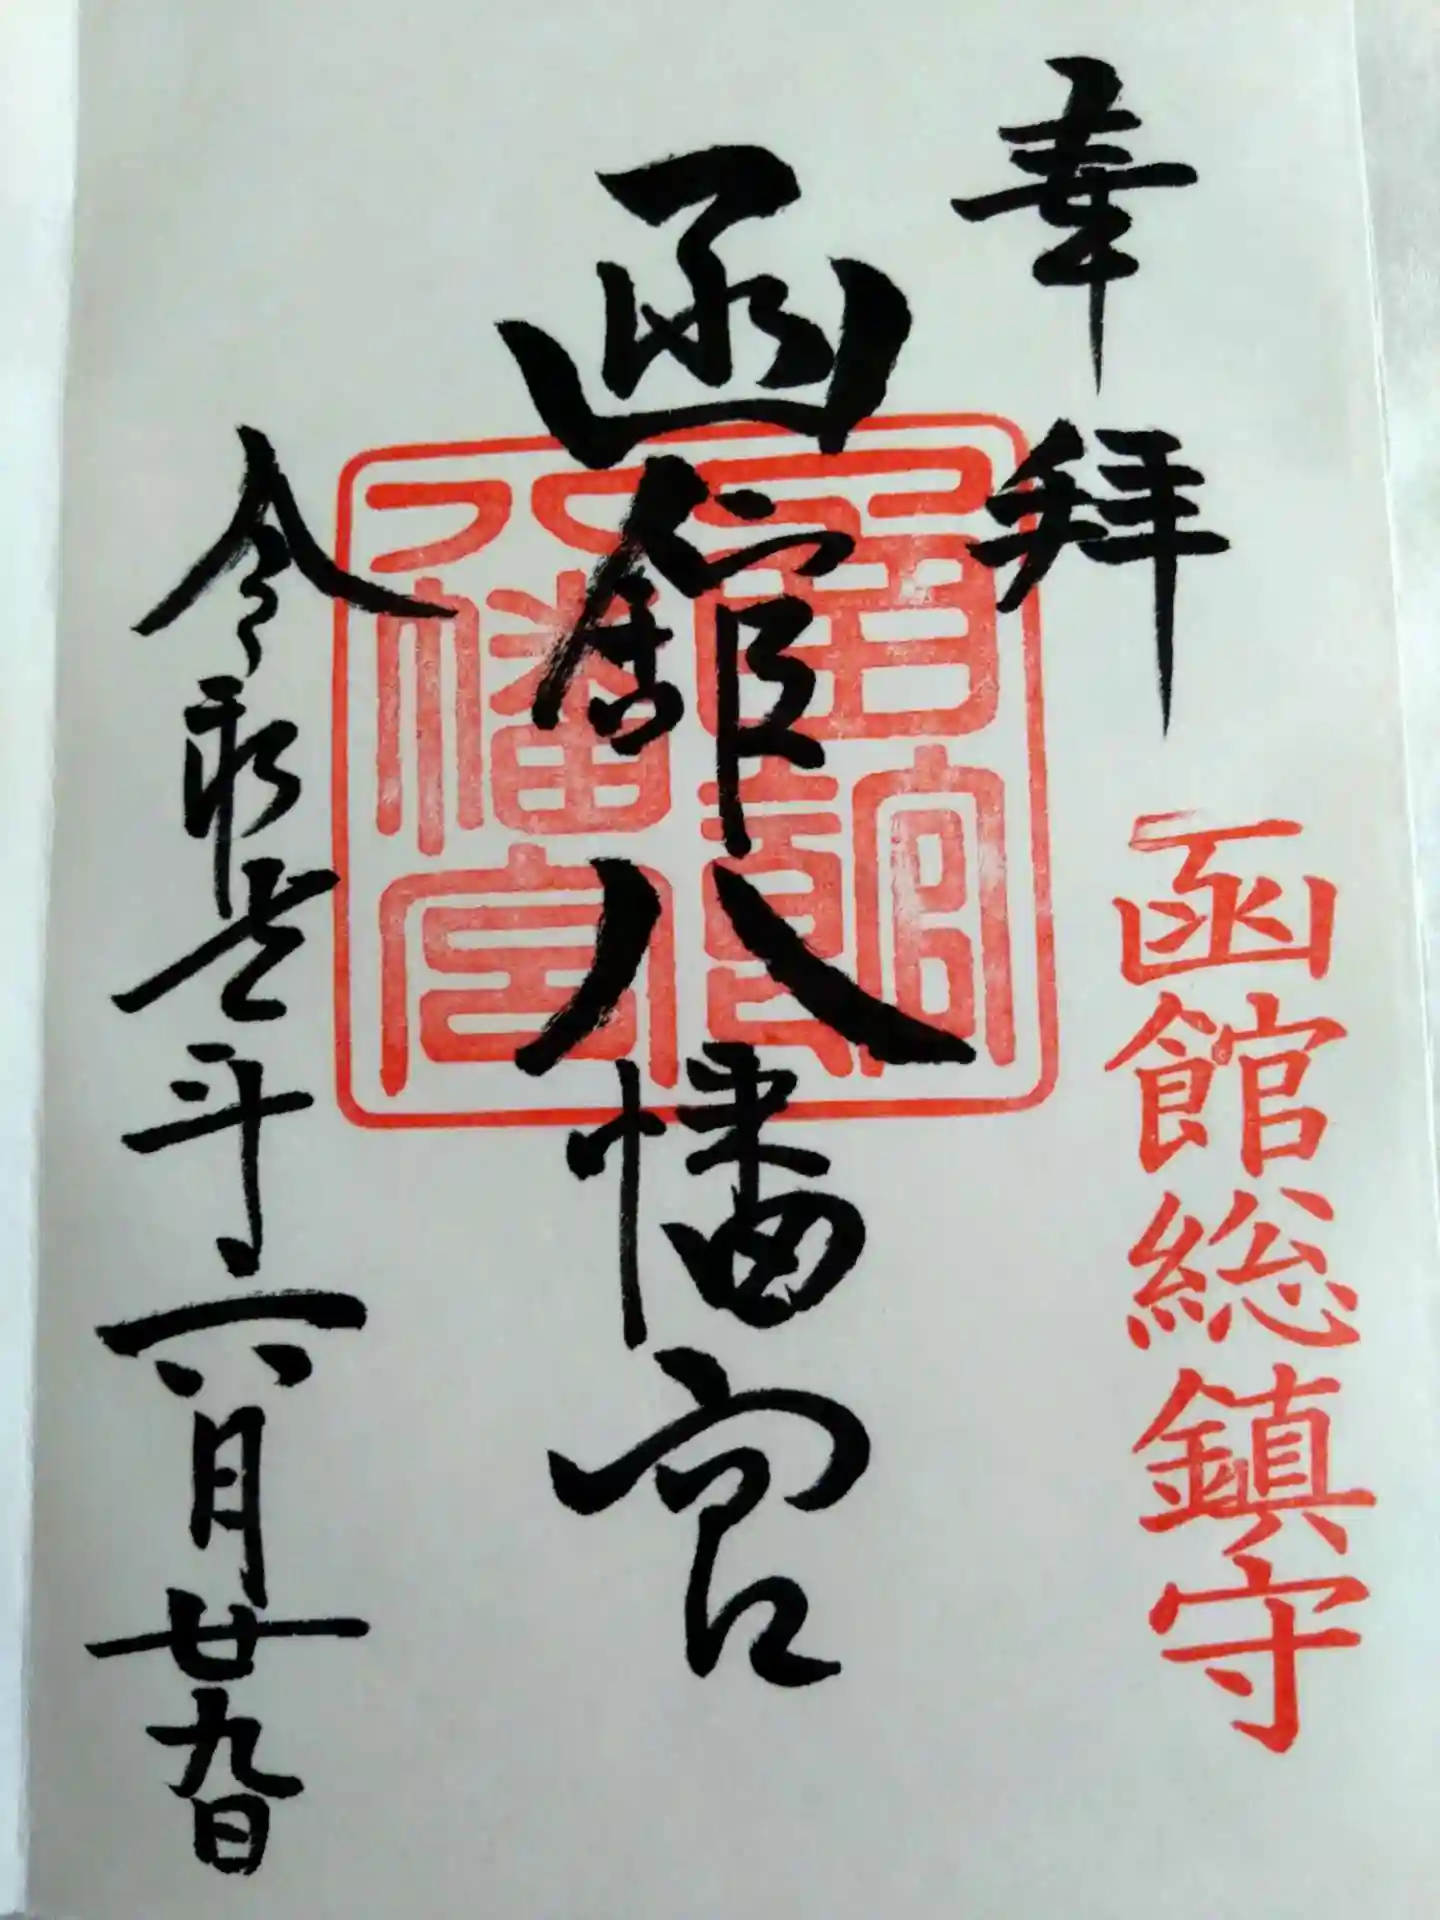 奉拝
函館総鎮守
函館八幡宮
函館
八幡宮
令和元年六月廿九日